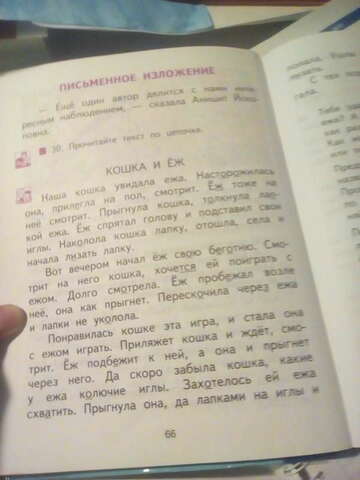 ПИСЬМЕННОЕ ИЗЛОЖЕНИЕ
— Ещё один автор делится с нами инте-
ресным наблюдением, — сказала Анишит Йоко-
повна.
30. Прочитайте текст по цепочке.
КОШКА И ЁЖ
Наша кошка увидала ежа. Насторожилась
она, прилегла на пол, смотрит. Ёж тоже на
неё смотрит. Прыгнула кошка, толкнула лап-
кой ежа. Ёж спрятал голову и подставил свои
иглы. Наколола кошка лапку, отошла, села и
начала лизать лапку.
Вот вечером начал ёж свою беготню. Смо-
трит на него кошка, хочется ей поиграть с
ежом. Долго смотрела. Ёж пробежал возле
неё, она как прыгнет. Перескочила через ежа
и лапки не уколола.
Понравилась кошке эта игра, и стала она
с ежом играть. Приляжет кошка и ждёт, смо-
трит. Ёж подбежит к ней, а она и прыгнет
через него. Да скоро забыла кошка, какие
у ежа колючие иглы. Захотелось ей ежа
схватить. Прыгнула она, да лапками на иглы и
66